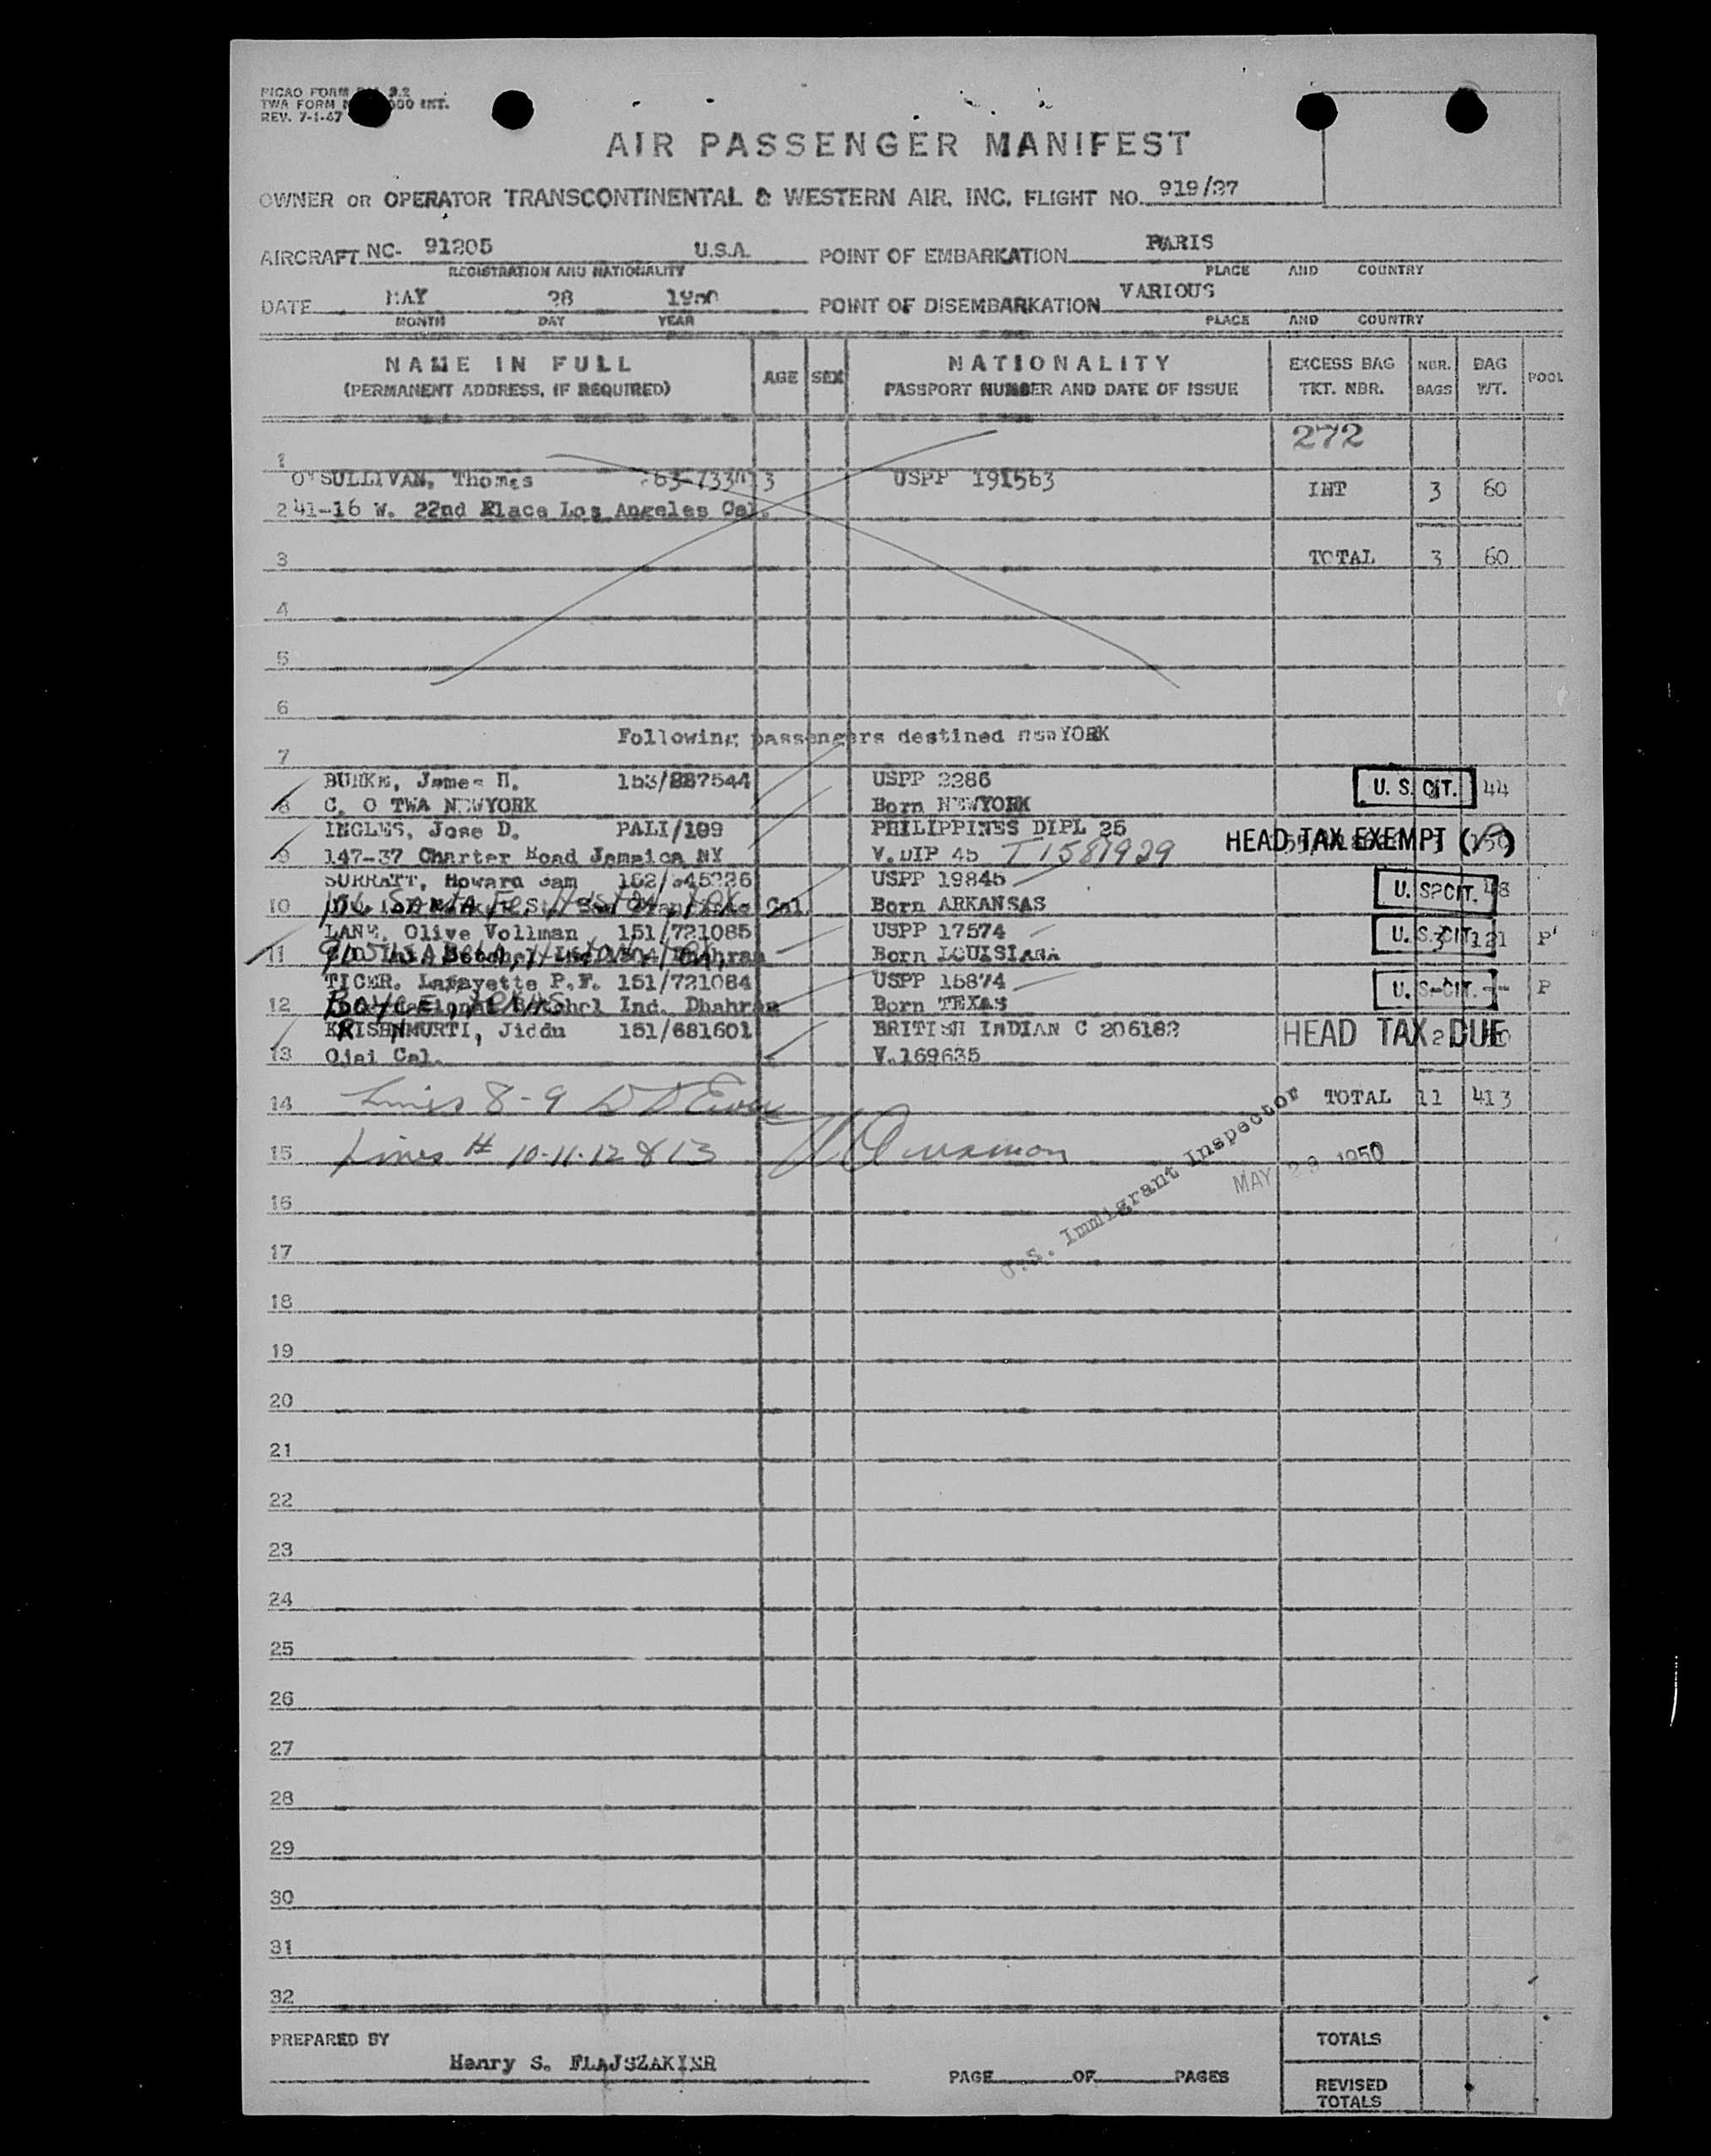 PICAO FORM 9.2
TWA FORM 000 INT.
REV. 7-1-47
AIR PASSENGER MANIFEST
OWNER OR OPERATOR TRANSCONTINENTAL & WESTERN AIR, INC. FLIGHT NO. 919/27
AIRCRAFT NC- 91205 U.S.A. POINT OF EMBARKATION PARIS
REGISTRATION AND NATIONALITY PLACE AND COUNTRY
DATE MAY 28 1950 POINT OF DISEMBARKATION VARIOUS
MONTH DAY YEAR PLACE AND COUNTRY
NAME IN FULL AGE SEX NATIONALITY EXCESS BAG NBR. BAG POOL
(PERMANENT ADDRESS, IF REQUIRED) PASSPORT NUMBER AND DATE OF ISSUE TKT. NBR. BAGS WT.
272
1
O'SULLIVAN, Thomas USPP 191563 INT 3 60
2 41-16 W. 22nd Place Los Angeles Cal.
3 TOTAL 3 60
4
5
6
Following passengers destined NEWYORK
7
BURKE, James H. 153/887544 USPP 2286 U. S. CIT. 44
8 C. O TWA NEWYORK Born NEWYORK
INGLES, Jose D. PALI/109 PHILIPPINES DIPL 25 HEAD TAX EXEMPT
9 147-37 Charter Road Jamaica NY V.DIP 45 T1581929
SURRATT, Howard Sam USPP 19845 U. S. CIT.
10 Cal. Born ARKANSAS
LANE, Olive Vollman 151/721085 USPP 17574 U. S. CIT. 121 P
11 Dhahran Born LOUISIANA
TICER, Lafayette P.F. 151/721084 USPP 15874 U. S. CIT. P
12 Ind. Dhahran Born TEXAS
KRISHNMURTI, Jiddu 151/681601 BRITISH INDIAN C 206182 HEAD TAX DUE
13 Ojai Cal. V.169635
14 Lines 8-9 TOTAL 11 413
15 Lines # 10-11-12 & 13
U.S. Immigrant Inspector
MAY 29 1950
16
17
18
19
20
21
22
23
24
25
26
27
28
29
30
31
32
PREPARED BY TOTALS
Henry S. FLAJSZAKIER
PAGE OF PAGES REVISED
TOTALS